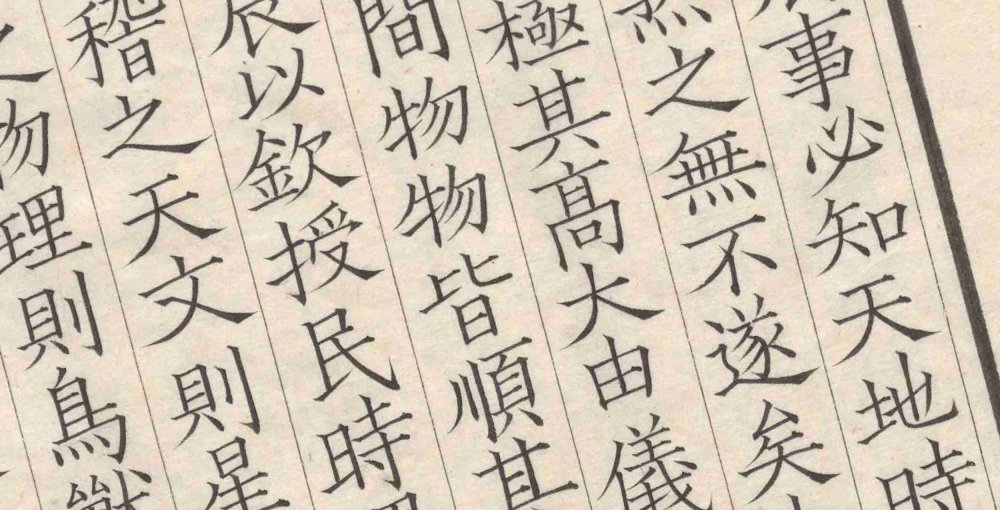 事必知天地時
之無不遂矣
極其高大由儀
間物物皆順其
辰以欽授民時
稽之天文則星
之物理則鳥獸